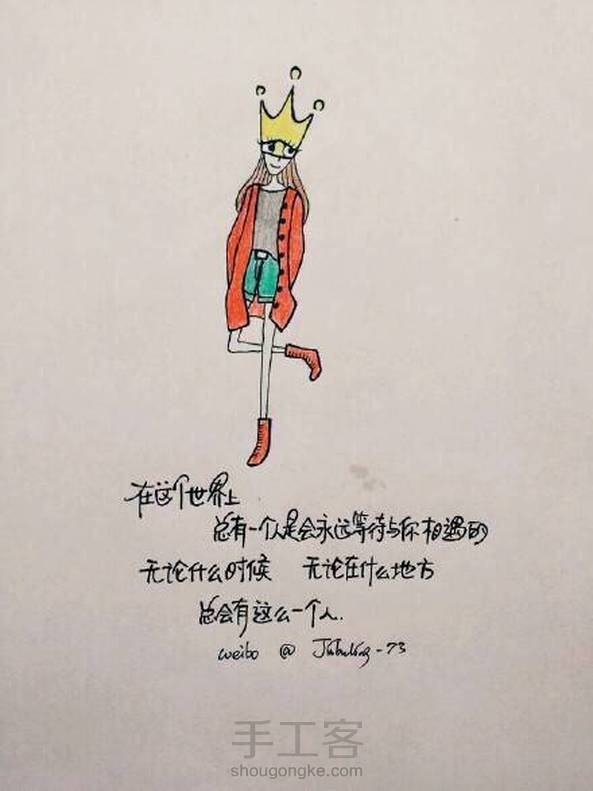 在这个世界上
总有一个人是会永远等待与你相遇的
无论什么时候 无论在什么地方
总会有这么一个人.
weibo @
手工客
shougongke.com